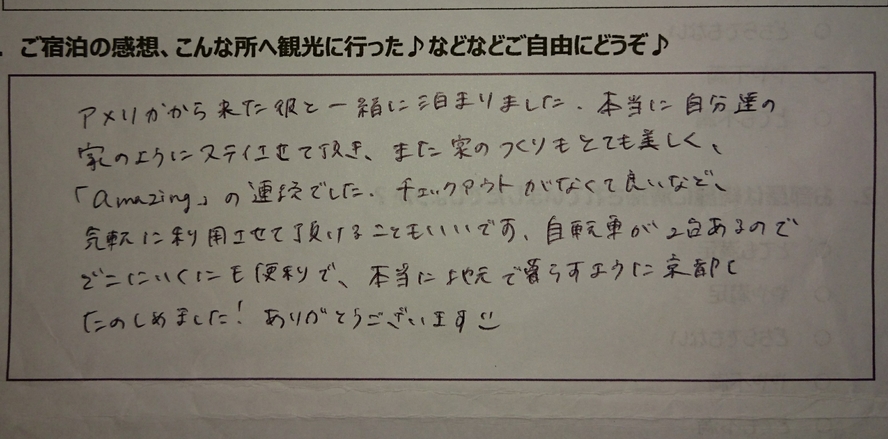 . ご宿泊の感想、こんな所へ観光に行った♪などなどご自由にどうぞ♪
アメリカから来た彼と一緒に泊まりました. 本当に自分達の
家のようにステイさせて頂き、また家のつくりもとても美しく、
「amazing」の連続でした. チェックアウトがなくて良いなど、
気軽に利用させて頂けることもいいです。自転車が2台あるので
どこにいくにも便利で、本当に地元で暮らすように京都を
たのしめました! ありがとうございます